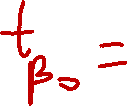 t_{β₀} =